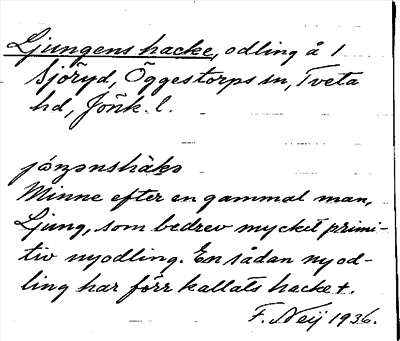 Ljungens hacke, odling å 1
Sjöryd, Öggestorps sn, Tveta
hd, Jönk. l.
Minne efter en gammal man,
Ljung, som bedrev mycket primi-
tiv nyodling. En sådan nyod-
ling har förr kallats hacket.
F. Neij 1936.